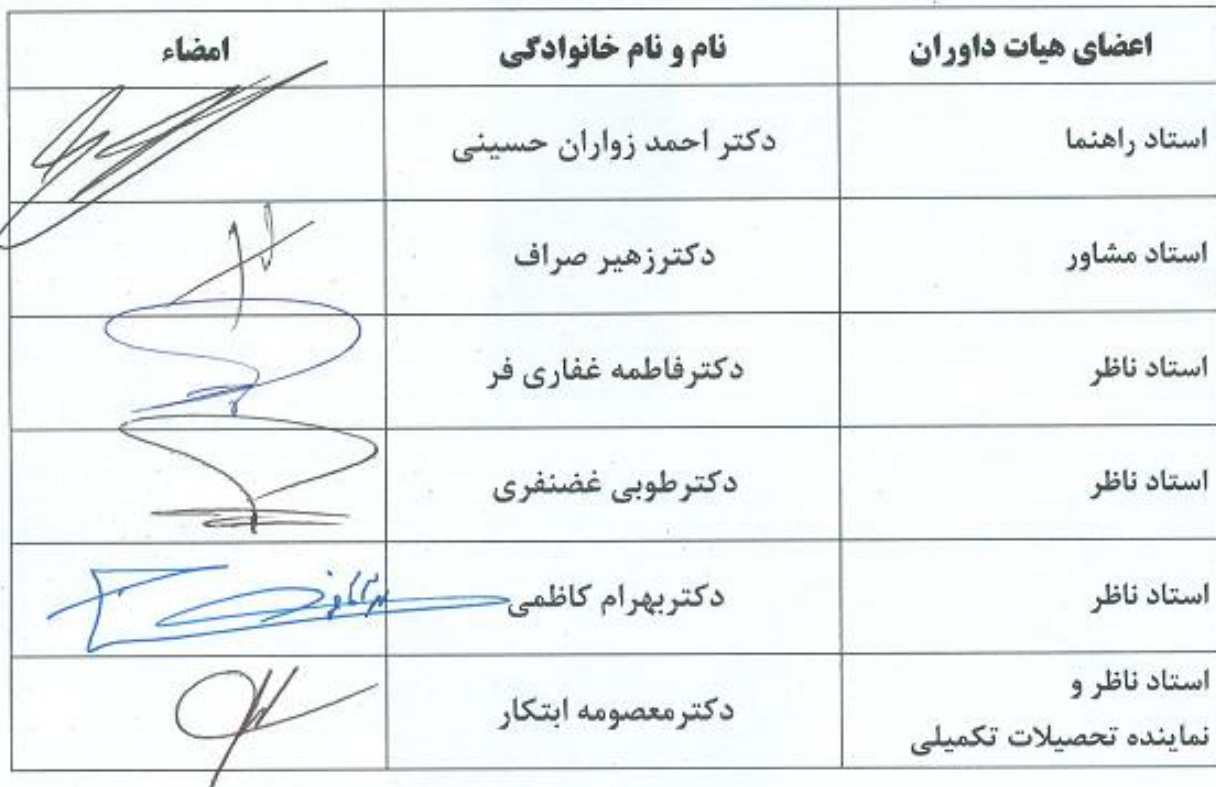 اعضای هیات داوران نام و نام خانوادگی امضاء
استاد راهنما دکتر احمد زواران حسینی
استاد مشاور دکترزهیر صراف
استاد ناظر دکترفاطمه غفاری فر
استاد ناظر دکترطوبی غضنفری
استاد ناظر دکتربهرام کاظمی
استاد ناظر و
نماینده تحصیلات تکمیلی دکترمعصومه ابتکار